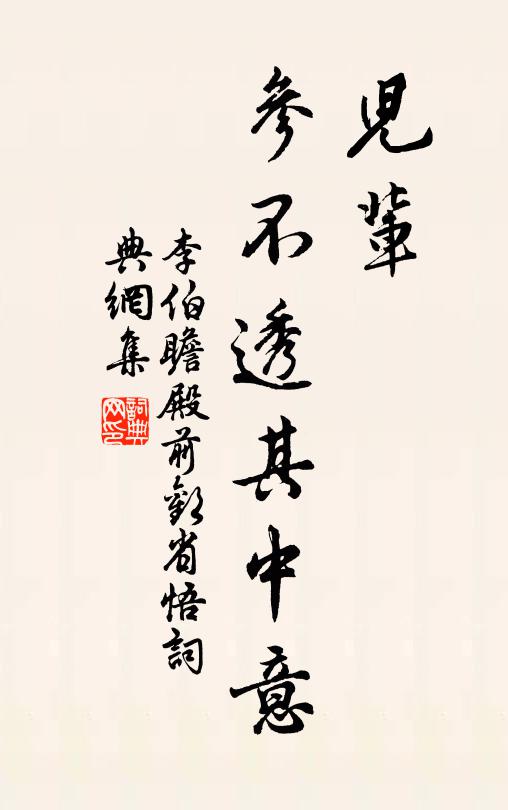 兒輩
參不透其中意
李伯瞻殿前歡省悟詞
典網集
詞典網印